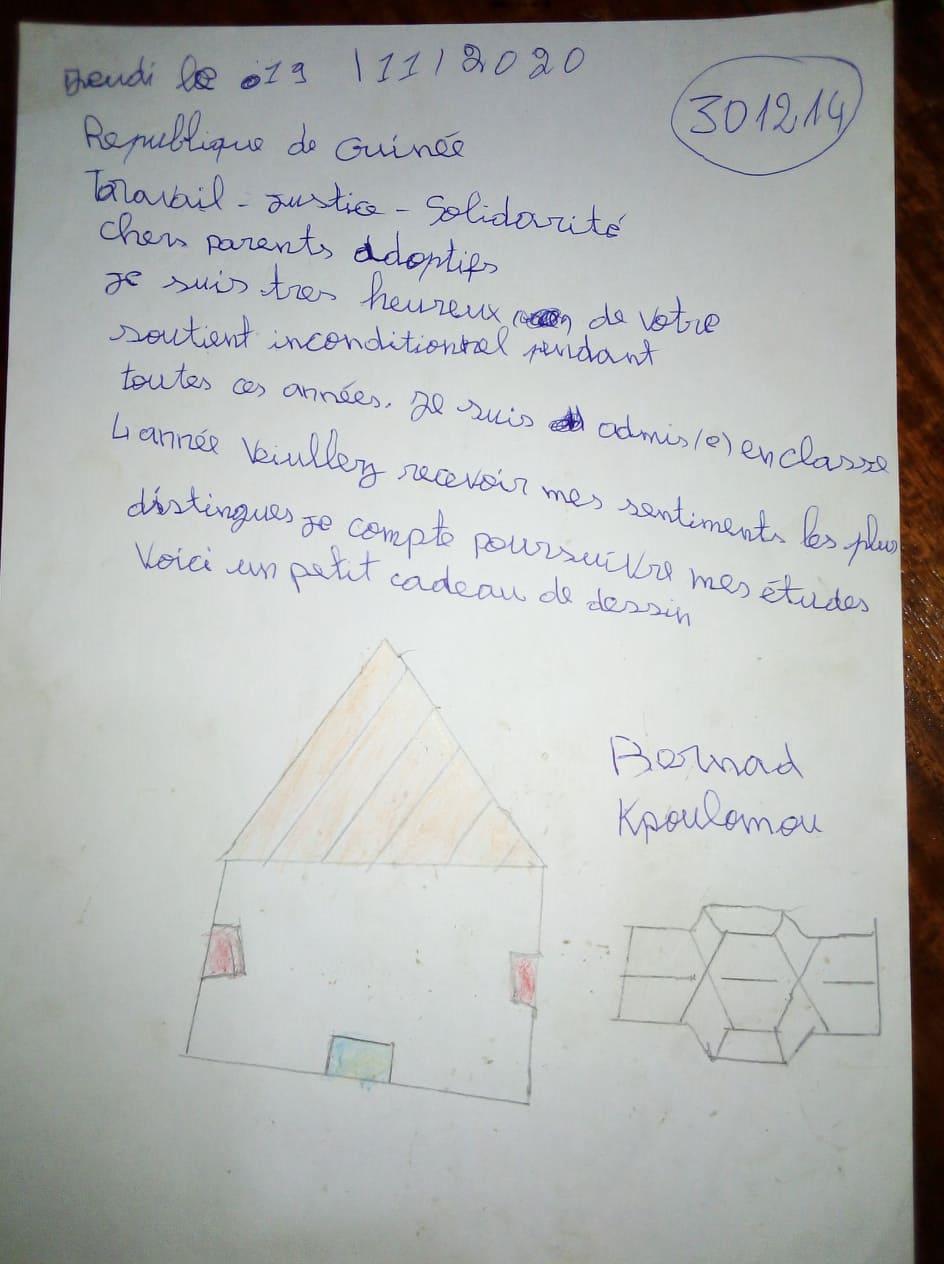 Jeudi le 019 /11/2020
301214
Republique de Guinée
Travail - Justice - Solidarité
chers parents Adoptifs
je suis tres heureux de votre
soutient inconditionnel pendant
toutes ces années. Je suis admis(e) en classe
4 année Veiullez recevoir mes sentiments les plus
distingues je compte poursuivre mes études
Voici un petit cadeau de dessin
Bernad
Kpoulomou